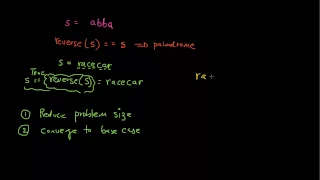 s = abba
reverse(s) == s => palindrome
s = racecar
True
s == reverse(s) = racecar
ra
① Reduce problem size
② converge to base case